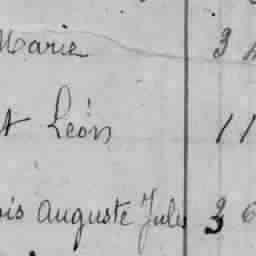 Marie 3
t Léon 11
ois Auguste Jules 36